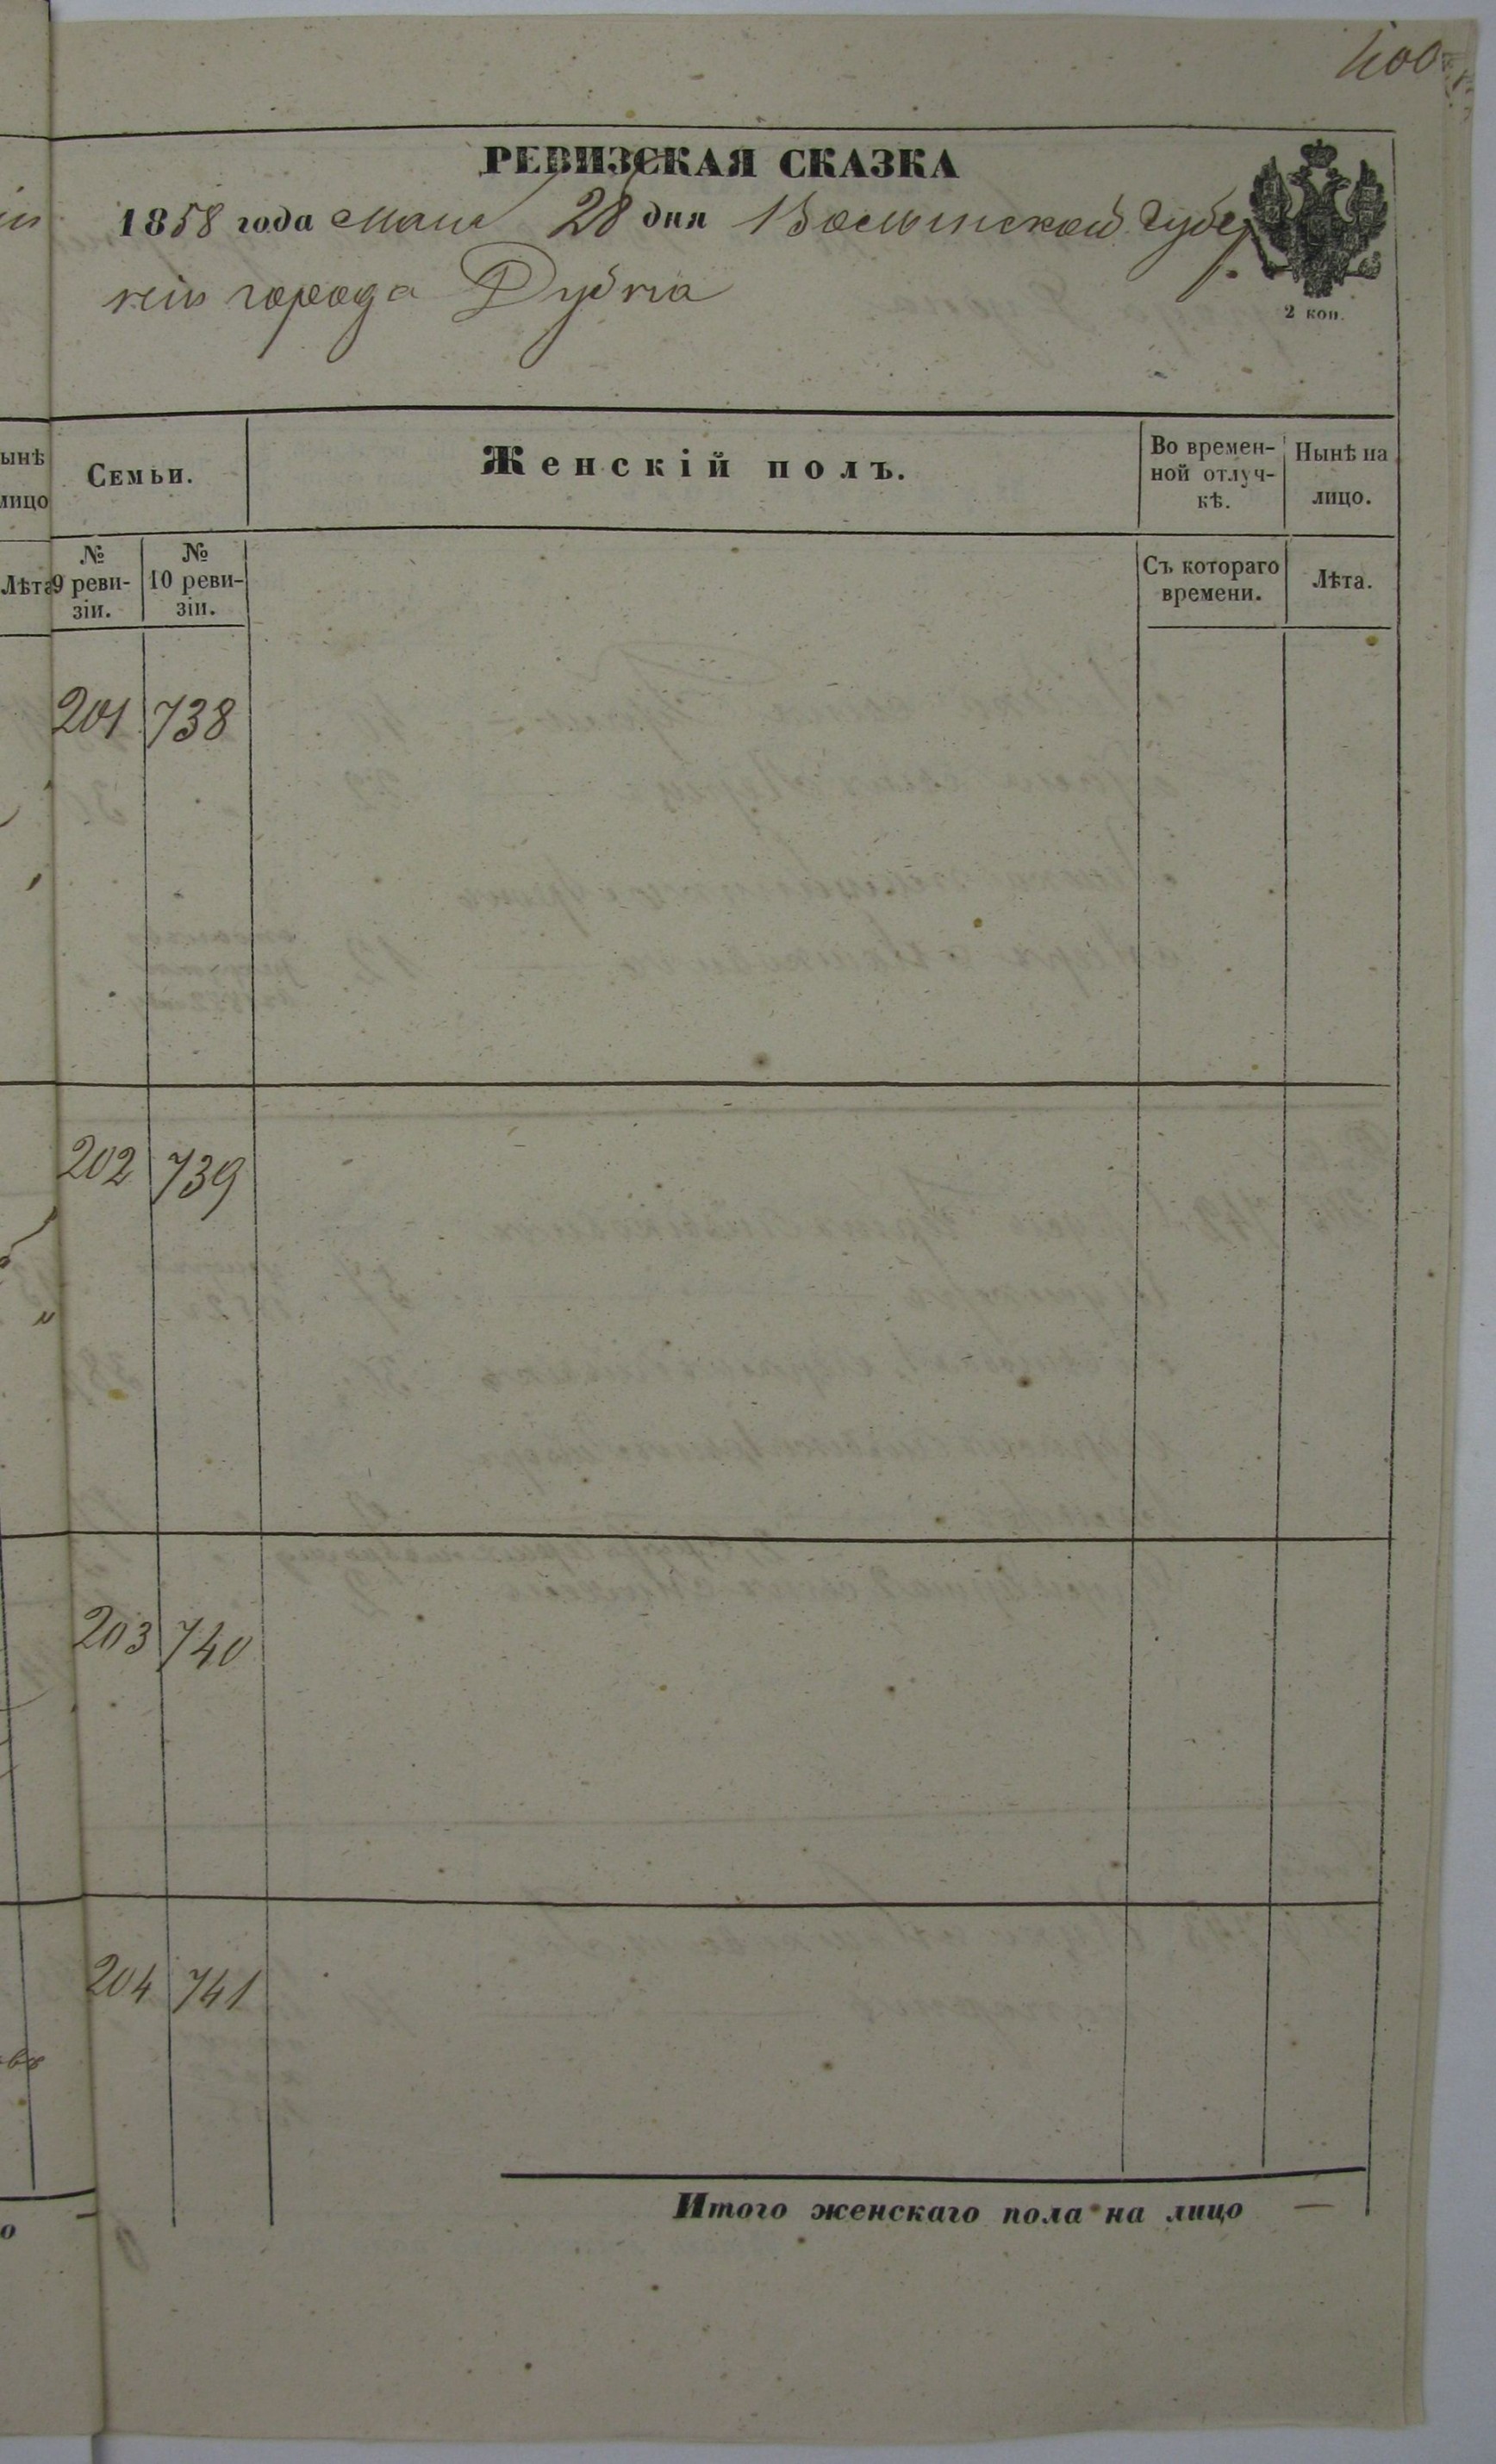 400
РЕВИЗСКАЯ СКАЗКА
1858 года Маия 28 дня Волынской Губер
нiи города Дубна
2 коп.
ынѣ
лицо
Лѣта
Семьи.
Женскій полъ.
Во времен-
ной отлуч-
кѣ.
Нынѣ на
лицо.
№
9 реви-
зіи.
№
10 реви-
зіи.
Съ котораго
времени.
Лѣта.
201 738
202 739
203 740
204 741
Итого женскаго пола на лицо —
о